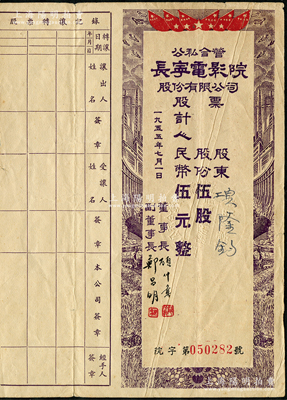 公私合營
長寧電影院
股份有限公司
股票
股東
股份伍股
計人民幣伍元整
一九五五年七月一日
董事長
副董事長
院字第050282號
股票轉讓記錄
轉讓日期
年月日
讓出人
姓名
簽章
受讓人
姓名
簽章
本公司簽章
經手人簽章